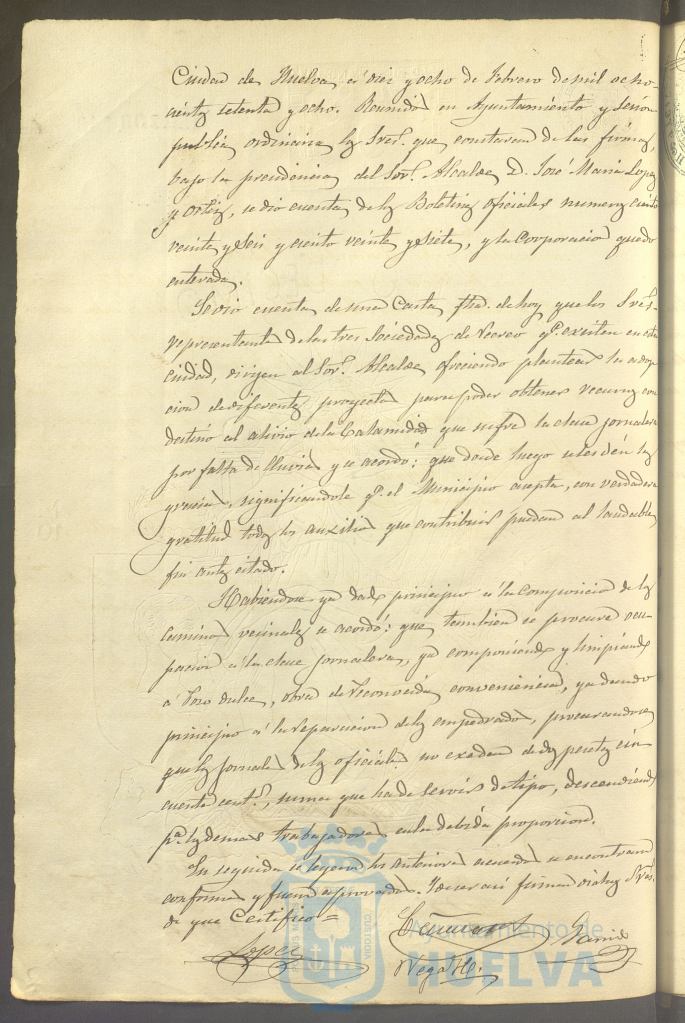 Ciudad de Huelva, a diez y ocho de Febrero de mil ocho-
cientos setenta y ocho. Reunidos en Ayuntamiento y sesion
publica ordinaria los Sres. que constaran de las firmas,
bajo la presidencia del Sor. Alcalde D. José Maria Lopez
y Ortiz, se dio cuenta de los Boletines oficiales numeros ciento
veinte y seis y ciento veinte y siete, y la Corporacion quedó
enterada.
Se dio cuenta de una Carta fha. de hoy que los Sres.
representantes de las tres Sociedades de Recreo qe. existen en esta
ciudad, dirigen al Sor. Alcalde ofreciendo plantear la adop
cion de diferentes proyectos para poder obtener recursos con
destino al alivio de la Calamidad que sufre la clase jornalera
por falta de lluvias y se acordó: que desde luego se les dén las
gracias, significandole qe. el Municipio acepta, con verdadera
gratitud todos los auxilios que contribuir puedan al laudable
fin antes citado.
Habiendose ya dado principio a la composicion de los
caminos vecinales se acordó: que tambien se procure ocu-
pacion a la clase jornalera, ya componiendo y limpiando
a Pozo dulce, obra de reconocida conveniencia, ya dando
principio a la reparacion de los empedrados, procurandose
que los jornales de los oficiales no exedan de dos pesetas cin
cuenta cents., suma que ha de servir de tipo, descendiendo
pa. los demas trabajadores en la debida proporcion.
En seguida se leyeron los anteriores acuerdos se encontraron
conformes y fueron aprobados. Y de ser asi firman dichos Sres.
de que Certifico =
Lopez
Garcia
Vega
CUSTODIA
Ayuntamiento de
HUELVA